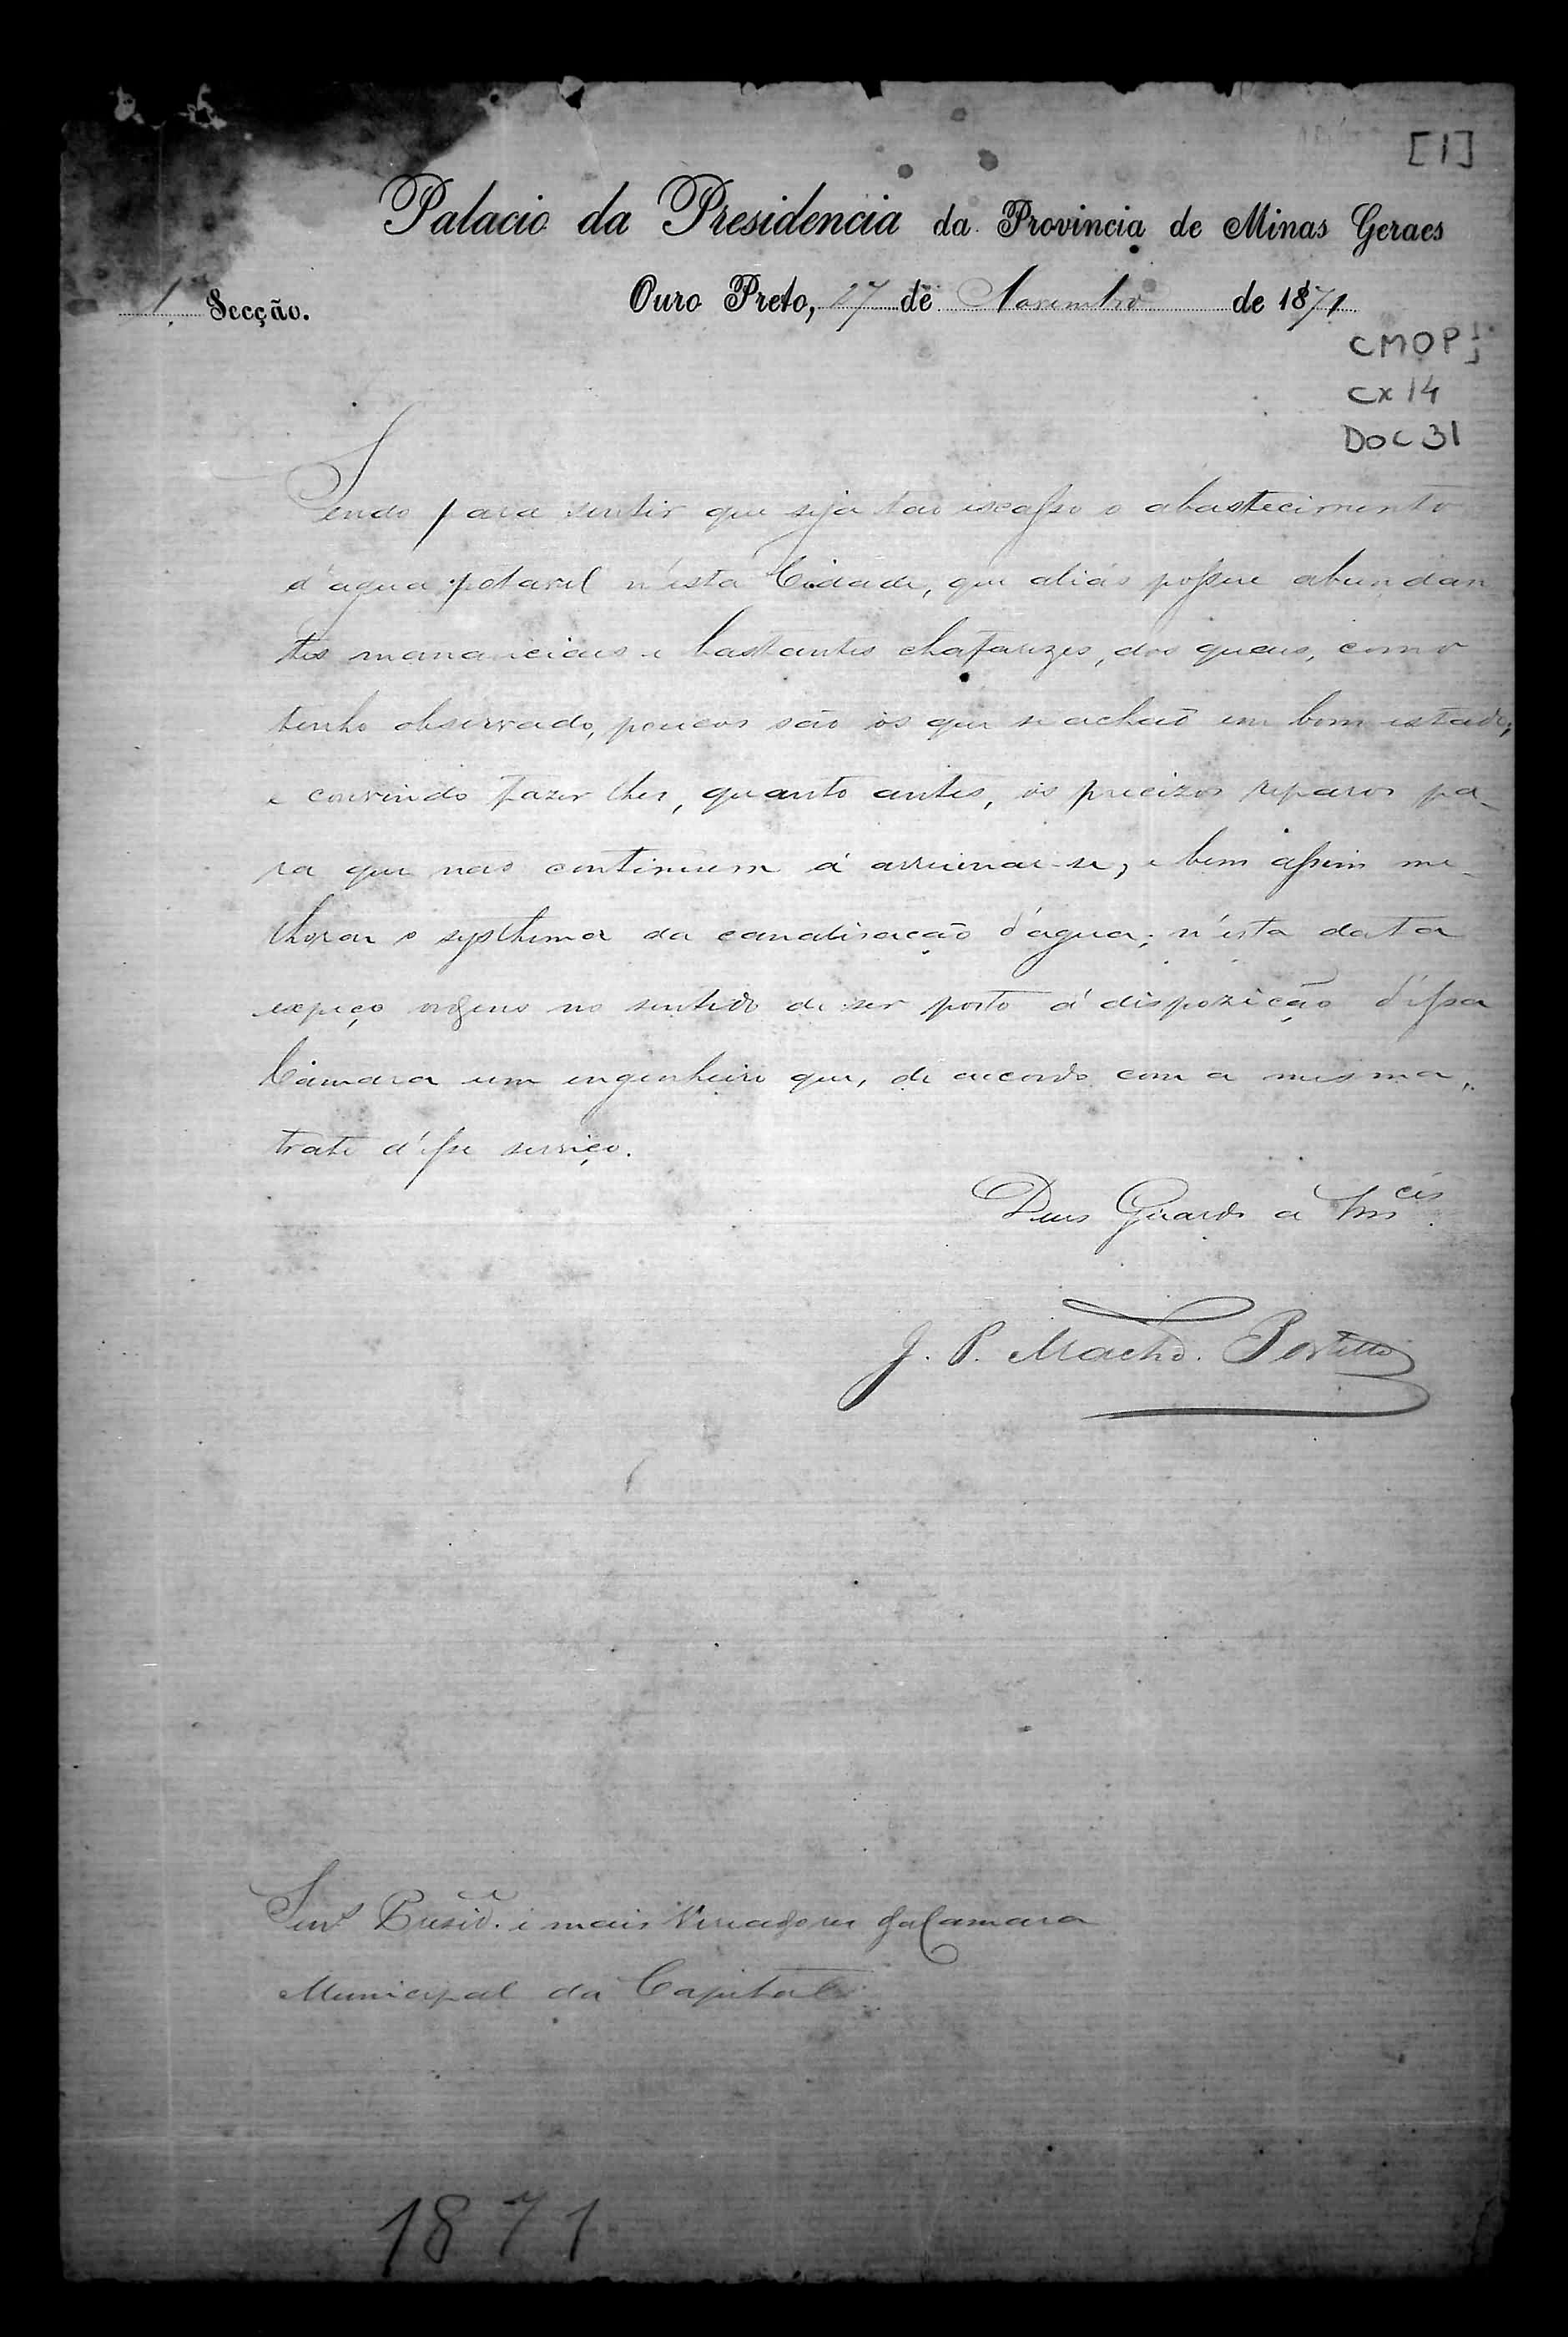 [1]
Palacio da Presidencia da Provincia de Minas Geraes
1. Secção. Ouro Preto, 27 de Novembro de 1871
CMOP
Cx 14
DOC 31
Sendo para sentir que seja tão escasso o abastecimento
d'agua potavel n'esta Cidade, que aliás possue abundan
tes mananciaes e bastantes chafarizes, dos quaes, como
tenho observado, poucos são os que se achão em bom estado;
e convindo fazer lhes, quanto antes, os precizos reparos pa-
ra que não continuem á arruinar-se, e bem assim me-
lhorar o systhema da canalisação d'agua; n'esta data
expeço ordens no sentido de ser posto á dispozição d'essa
Câmara um engenheiro que, de accordo com a mesma,
trate d'esse serviço.
Deus Guarde a Vm.ces
J. P. Machdo. Portella
Senrs Presid.e e mais Vereadores da Camara
Municipal da Capital
1871